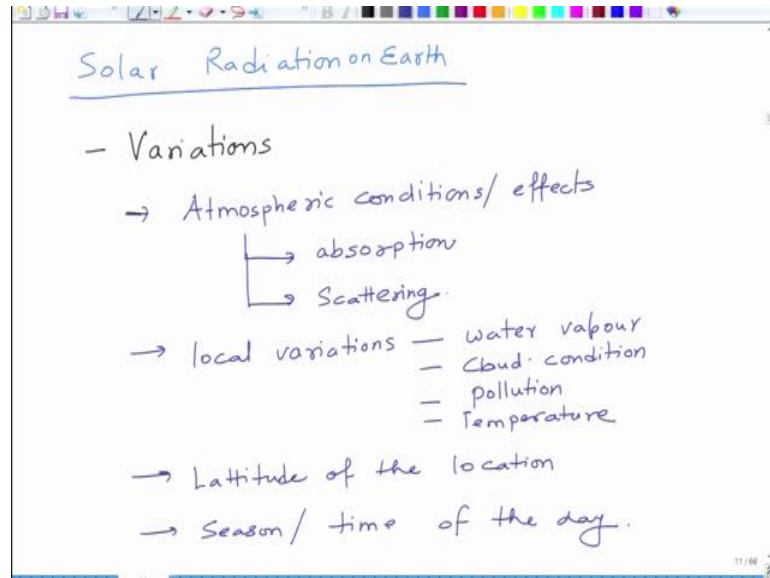 Solar Radiation on Earth
- Variations
→ Atmospheric conditions/ effects
→ absorption
→ Scattering.
→ local variations — water vapour
— Cloud condition
— pollution
— Temperature
→ Lattitude of the location
→ Season/ time of the day.
11/66